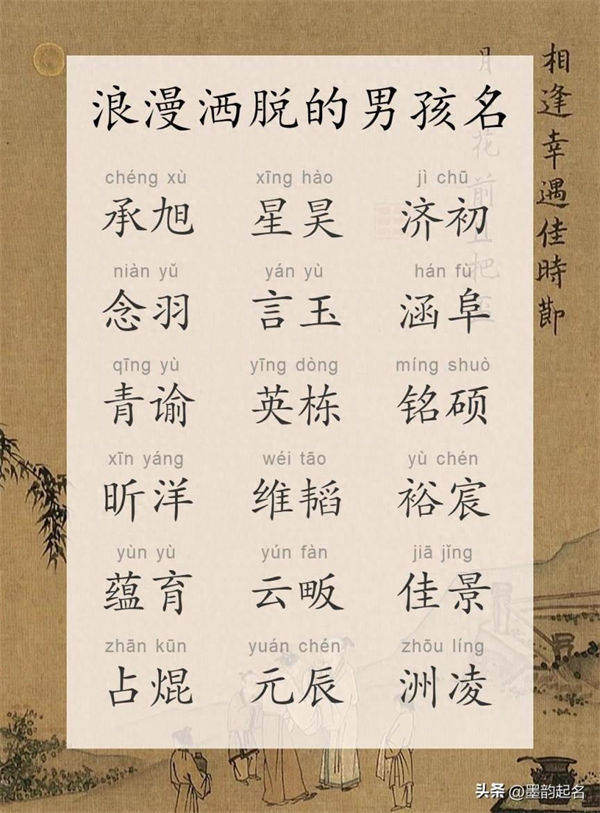 浪漫洒脱的男孩名
chéng xù xīng hào jì chū
承旭 星昊 济初
niàn yǔ yán yù hán fù
念羽 言玉 涵阜
qīng yù yīng dòng míng shuò
青谕 英栋 铭硕
xīn yáng wéi tāo yù chén
昕洋 维韬 裕宸
yùn yù yún fàn jiā jǐng
蕴育 云畈 佳景
zhān kūn yuán chén zhōu líng
占焜 元辰 洲凌
相逢幸遇佳時節
头条 @墨韵起名